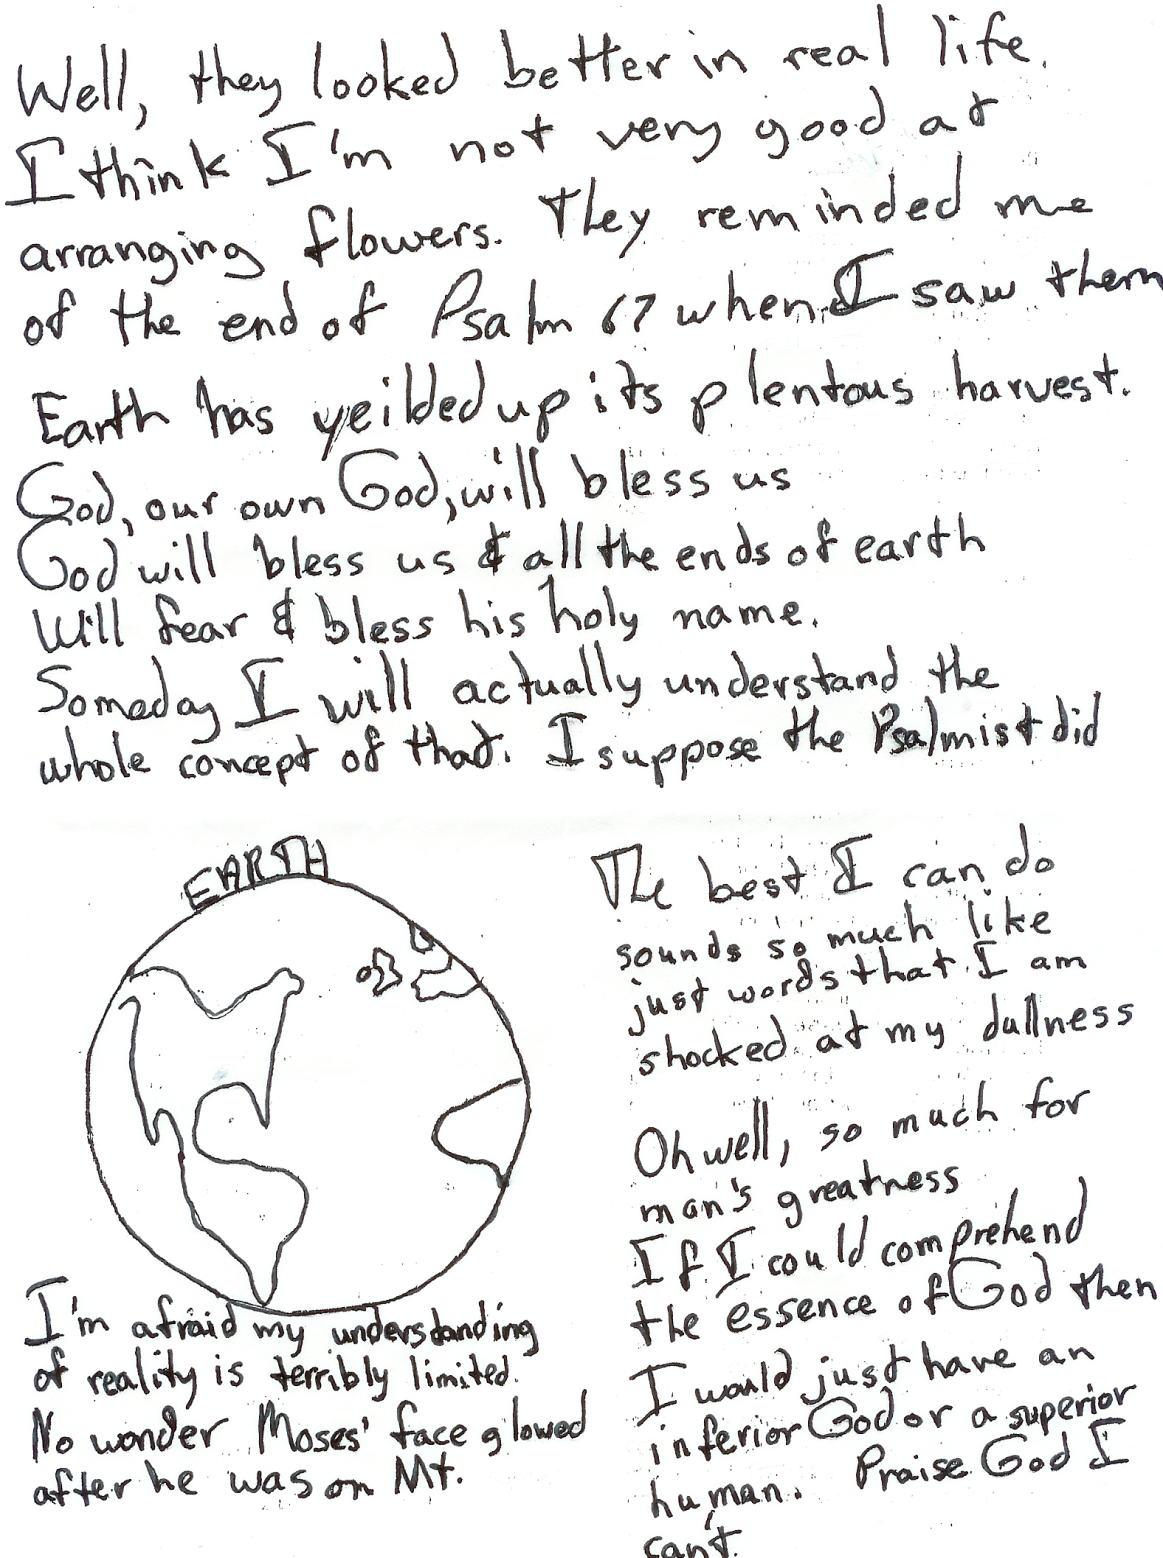 Well, they looked better in real life.
I think I'm not very good at
arranging flowers. They reminded me
of the end of Psalm 67 when I saw them
Earth has yeilded up its plentous harvest.
God, our own God, will bless us
God will bless us & all the ends of earth
Will fear & bless his holy name.
Someday I will actually understand the
whole concept of that. I suppose the Psalmist did
EARTH
I'm afraid my understanding
of reality is terribly limited.
No wonder Moses' face glowed
after he was on Mt.
The best I can do
sounds so much like
just words that I am
shocked at my dullness
Oh well, so much for
man's greatness
If I could comprehend
the essence of God then
I would just have an
inferior God or a superior
human. Praise God I
can't.